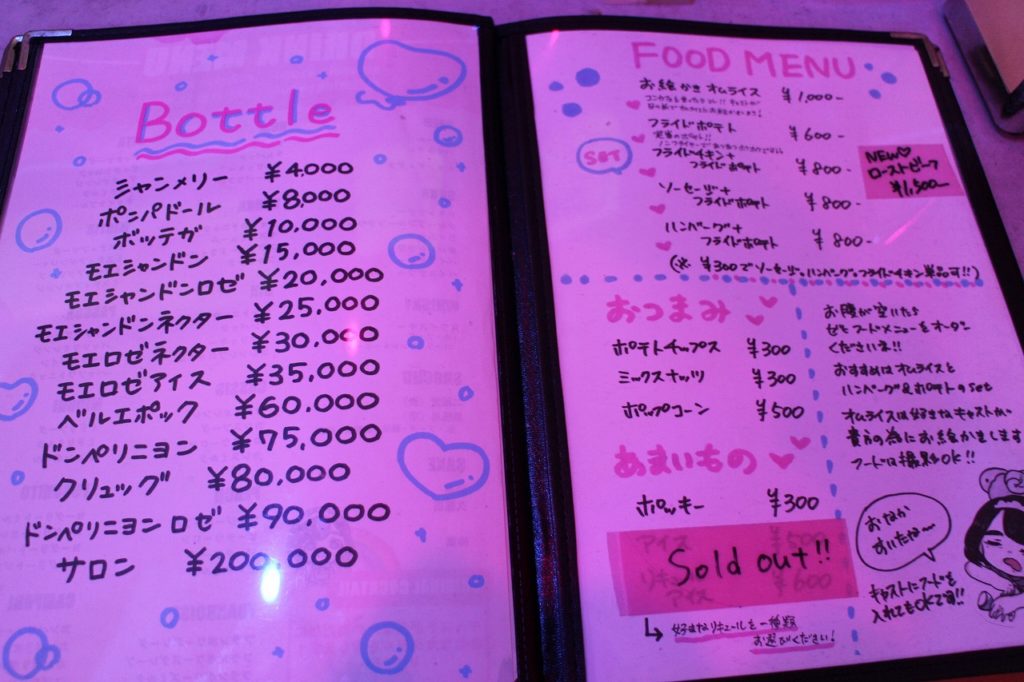 Bottle
シャンメリー ¥4,000
ポンパドール ¥8,000
ボッテガ ¥10,000
モエシャンドン ¥15,000
モエシャンドンロゼ ¥20,000
モエシャンドンネクター ¥25,000
モエロゼネクター ¥30,000
モエロゼアイス ¥35,000
ベルエポック ¥60,000
ドンペリニヨン ¥75,000
クリュッグ ¥80,000
ドンペリニヨン ロゼ ¥90,000
サロン ¥200,000
FOOD MENU
お絵かき オムライス ¥1,000-
フライドポテト ¥600-
SET
フライドチキン+
フライドポテト ¥800-
ソーセージ+
フライドポテト ¥800-
ハンバーグ+
フライドポテト ¥800-
(※ ¥300でソーセージ、ハンバーグ、フライドチキン単品可!!)
NEW♡
ローストビーフ
¥1,500-
おつまみ
ポテトチップス ¥300
ミックスナッツ ¥300
ポップコーン ¥500
あまいもの
ポッキー ¥300
アイス ¥500
リキュール
アイス ¥600
Sold out!!
好きなリキュールを一種類
お選びください!
お腹が空いたら
ぜひフードメニューをオーダー
くださいネ!!
おすすめはオムライスと
ハンバーグ&ポテトのset
オムライスは好きなキャストが
貴方の為にお絵かきします
フードは撮影OK!!
おなか
すいたな〜
キャストにフードを
入れてもOKです!!